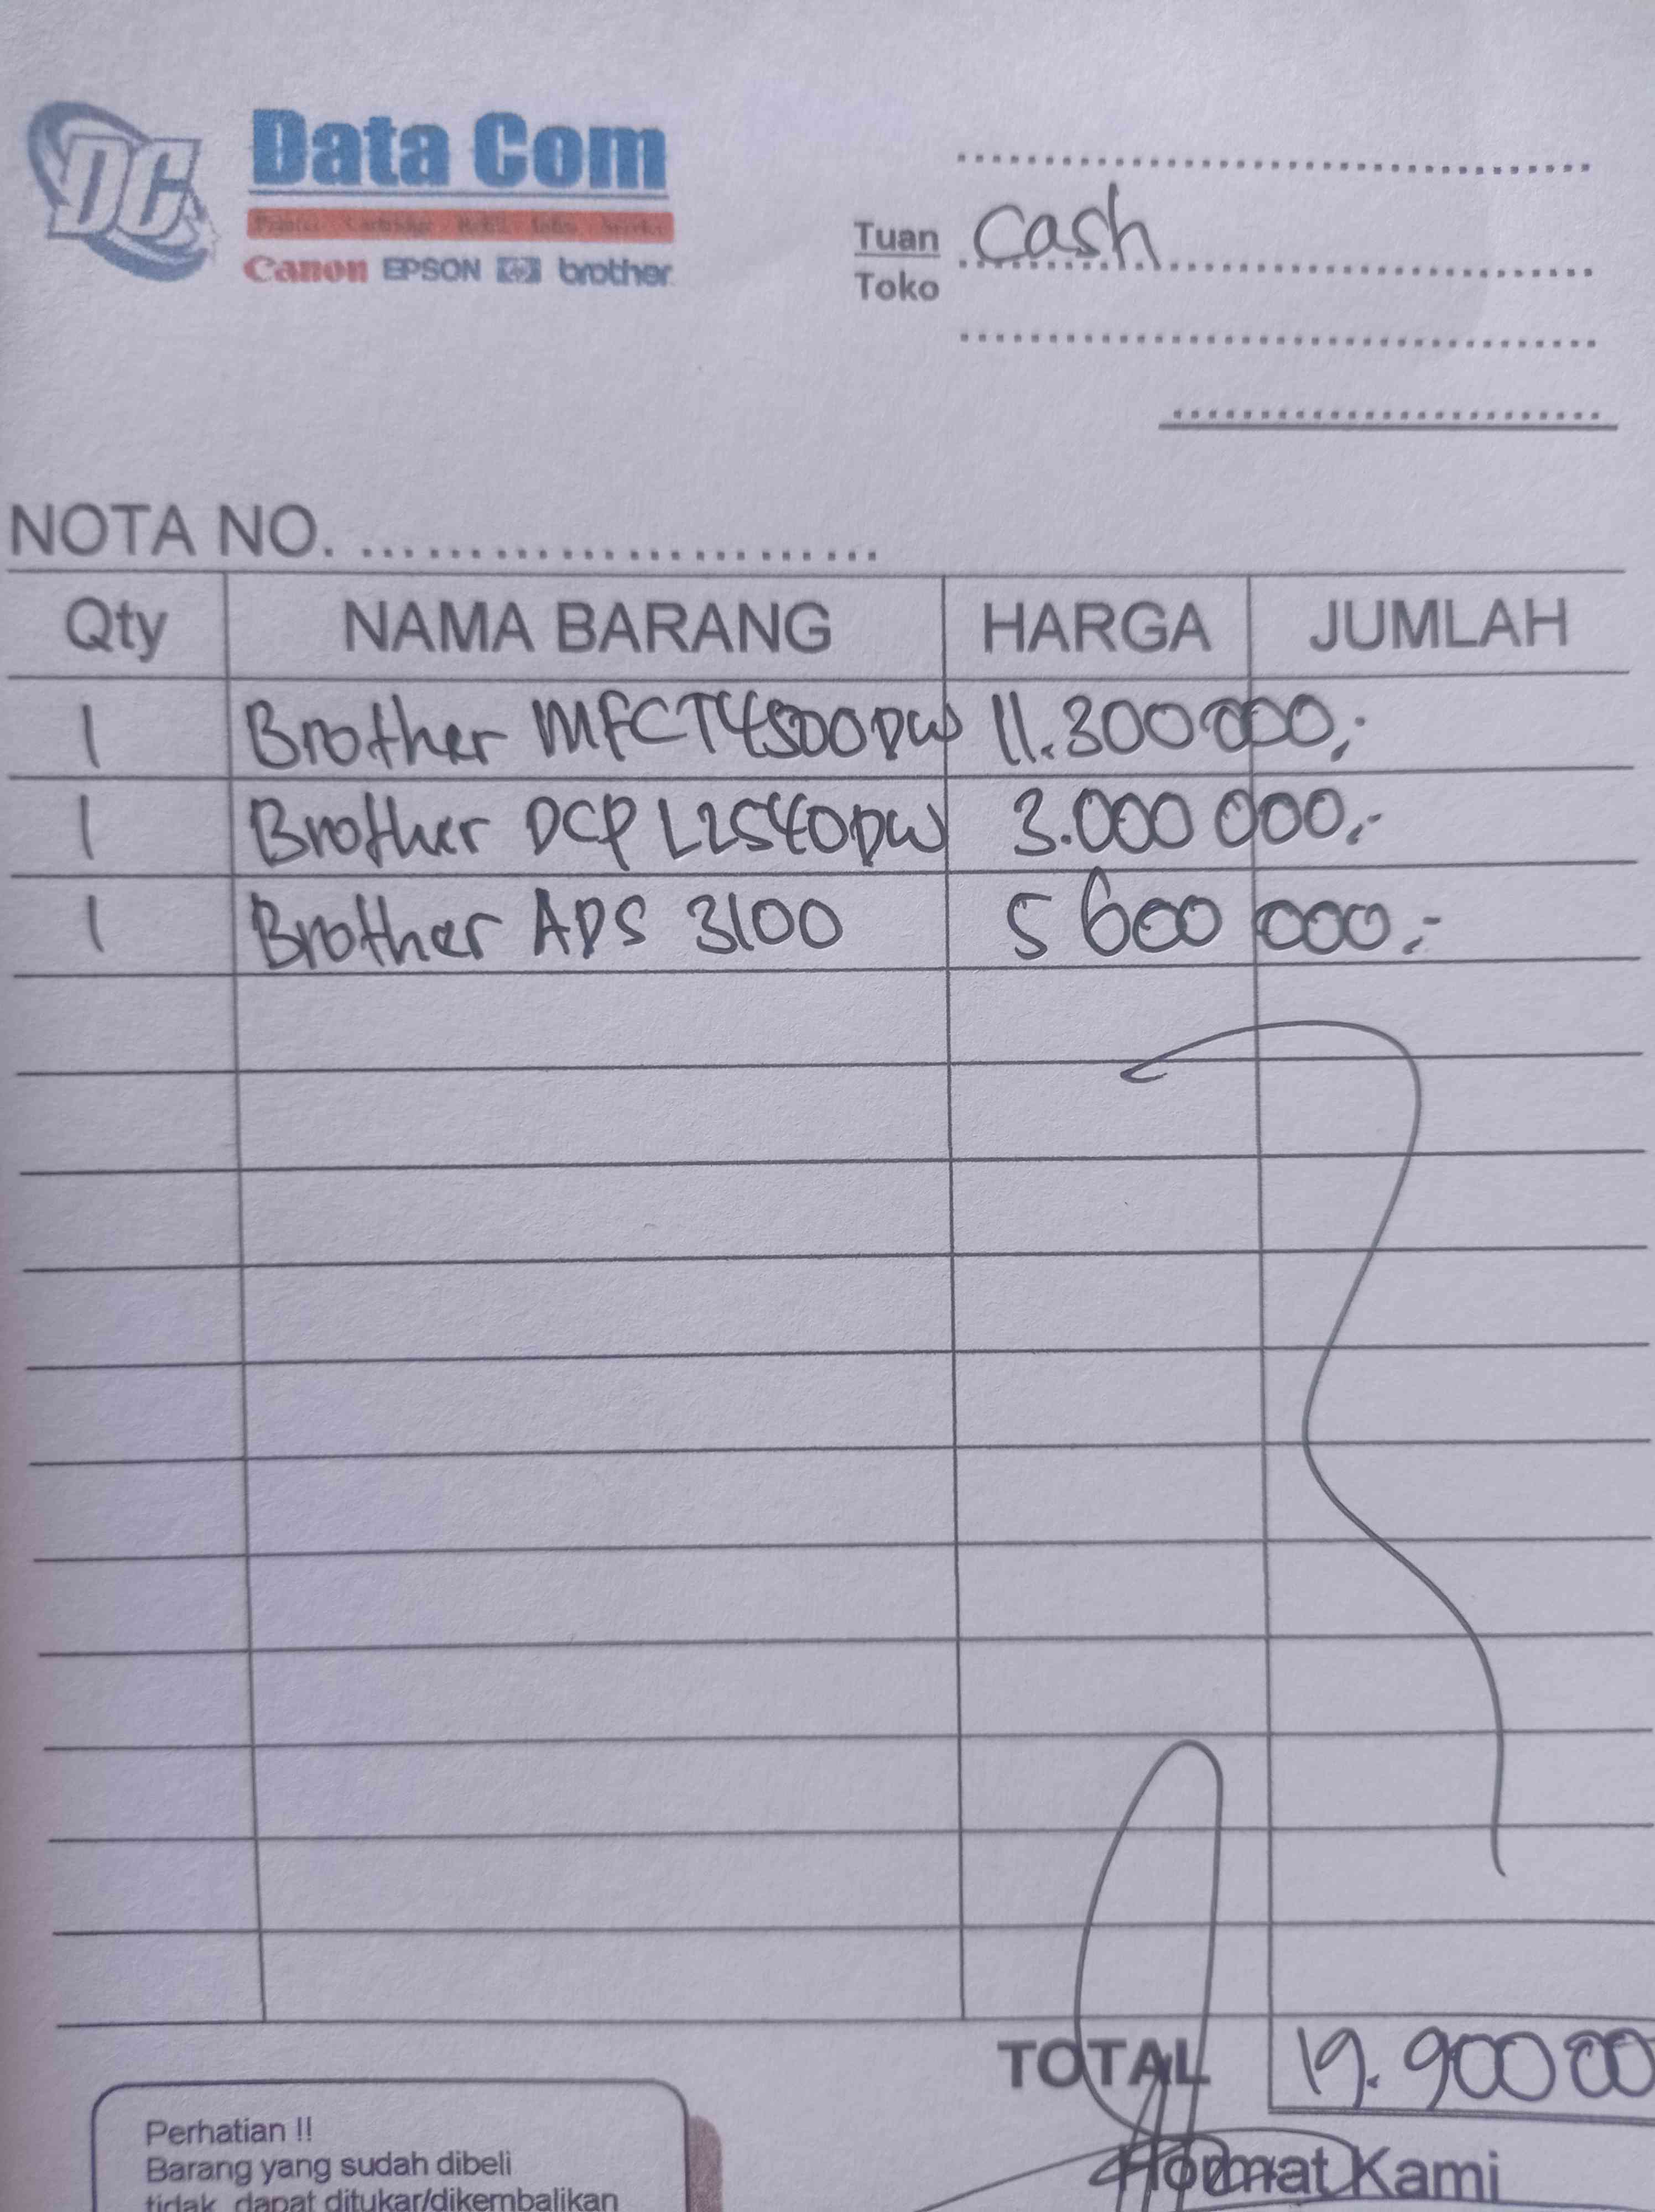 DC
Data Com
Printer Cartridge Refill Infus Service
Canon EPSON hp brother
Tuan cash
Toko
NOTA NO. ........................
Qty NAMA BARANG HARGA JUMLAH
1 Brother MFCT4500DW 11.300 000,-
1 Brother DCP L2540DW 3.000 000,-
1 Brother ADS 3100 5 600 000,-
TOTAL 19.900 00
Perhatian !!
Barang yang sudah dibeli
tidak dapat ditukar/dikembalikan
Hormat Kami